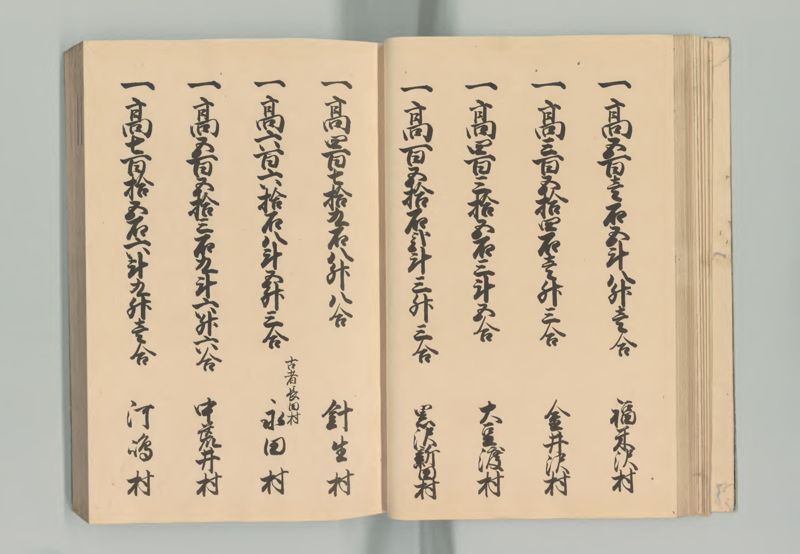 一高五百壱石五斗八升壱合 福米沢村
一高三百五拾四石壱升三合 金井沢村
一高四百三拾五石三斗五合 大豆渡村
一高百五拾石弐斗三升三合 黒沢新田村
一高四百七拾九石八升八合 針生村
一高六百六拾石八斗五升三合 古者長田村 永田村
一高五百五拾三石九斗六升六合 中荒井村
一高七百拾五石六斗九升壱合 河嶋村